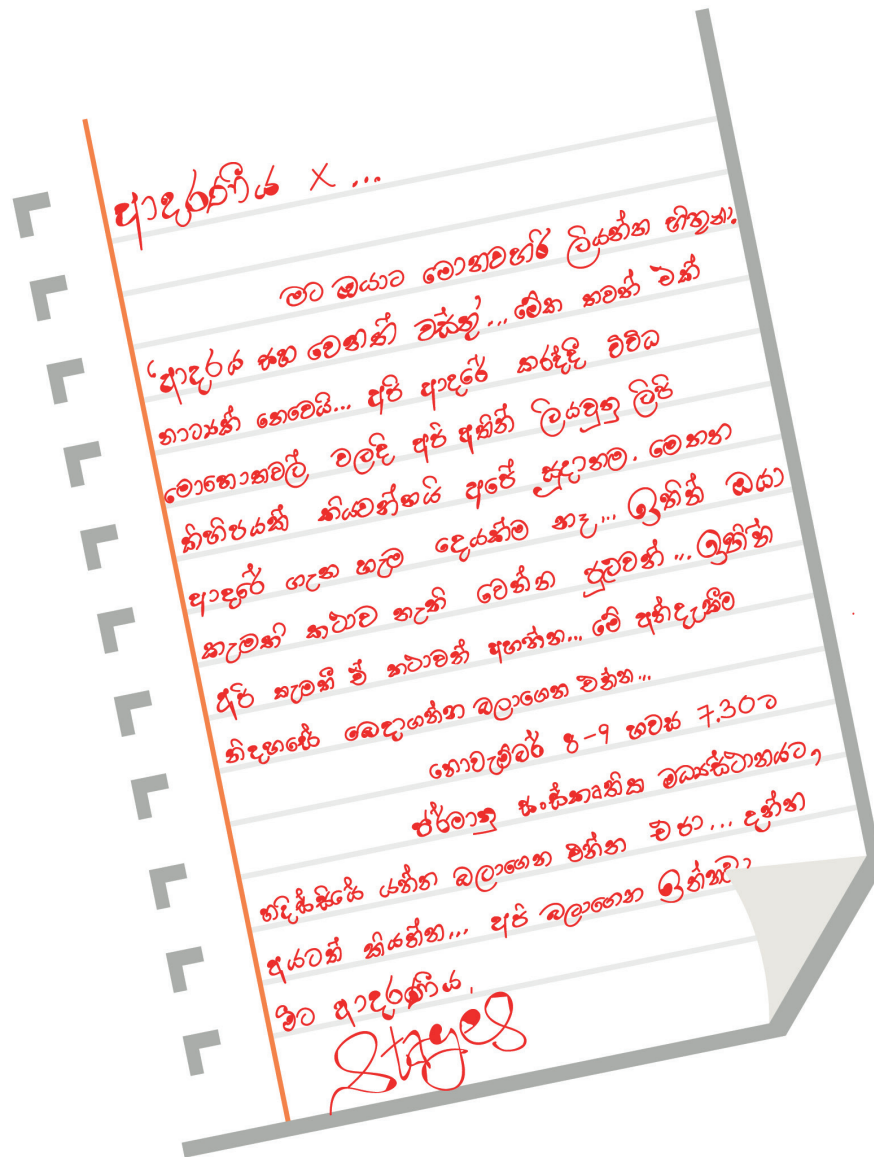 ආදරණීය X ...
මට ඔයාට මොනවහරි ලියන්න හිතුනා.
'ආදරය සහ වෙනත් වස්තු'... මේක තවත් එක්
නාට්‍යක් නෙවෙයි... අපි ආදරේ කරද්දි විවිධ
මොහොතවල් වලදි අපි අතින් ලියවුනු ලිපි
කිහිපයක් කියවන්නයි අපේ සූදානම. මෙතන
ආදරේ ගැන හැම දෙයක්ම නෑ... ඉතින් ඔයා
කැමති කථාව නැති වෙන්න පුළුවන්... ඉතින්
අපි කැමතී ඒ කථාවත් අහන්න... මේ අත්දැකීම
නිදහසේ බෙදාගන්න බලාගෙන එන්න...
නොවැම්බර් 8-9 හවස 7.30ට
ජර්මානු සංස්කෘතික මධ්‍යස්ථානයට,
හදිස්සියේ යන්න බලාගෙන එන්න එපා... දන්න
අයටත් කියන්න... අපි බලාගෙන ඉන්නවා,
මීට ආදරණීය,
Stages